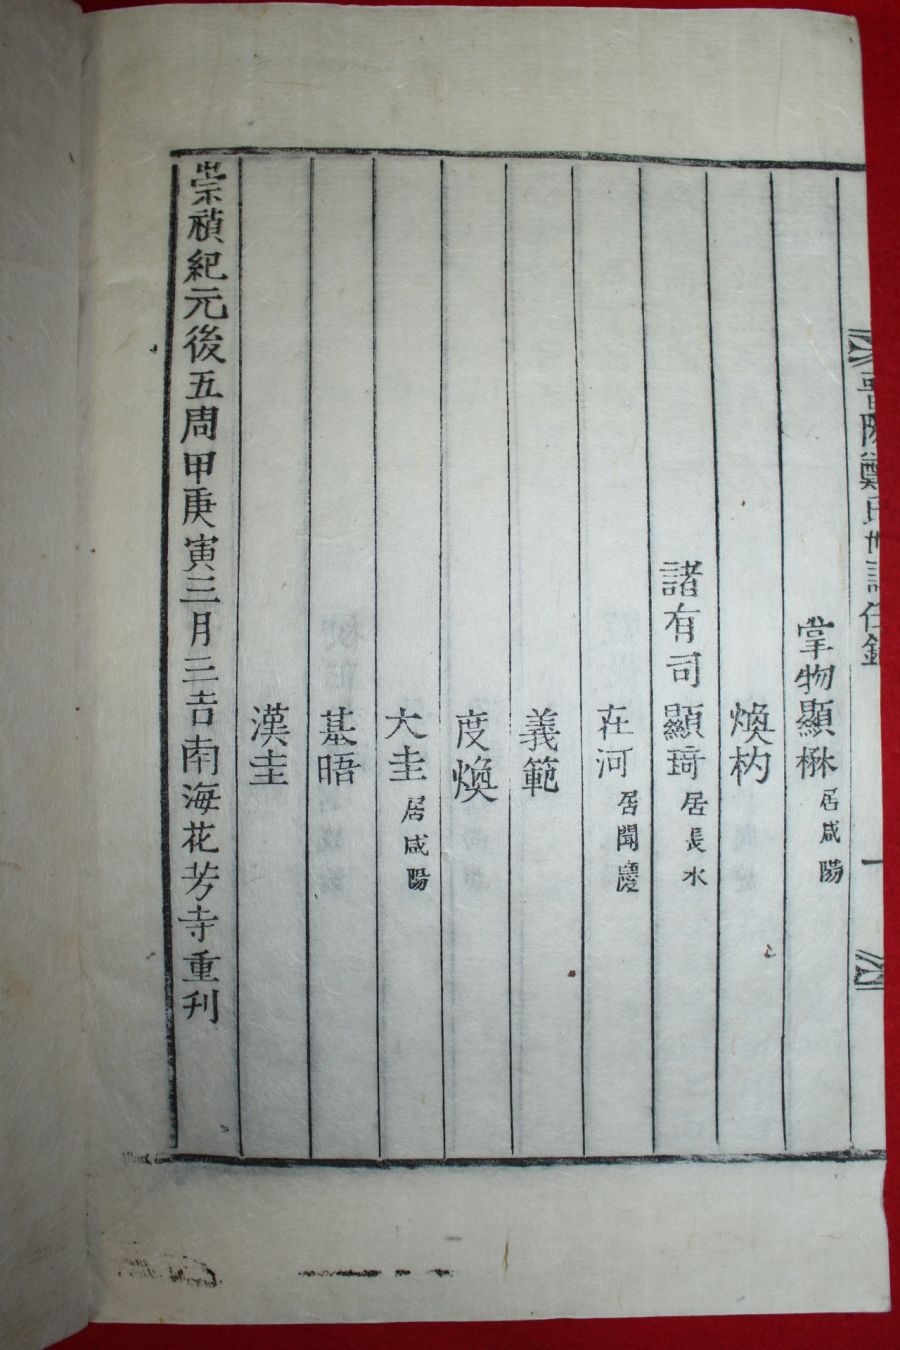 晋陽鄭氏世譜任錄
一
掌物顯楙居咸陽
煥杓
諸有司顯琦居長水
在河居聞慶
義範
度煥
大圭居咸陽
基晤
漢圭
崇禎紀元後五周甲庚寅三月三吉南海花芳寺重刊